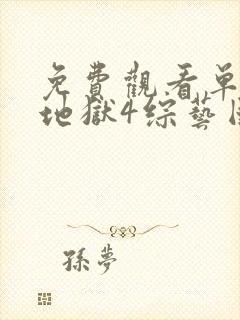 免費觀看單
地獄4綜藝
孫夢